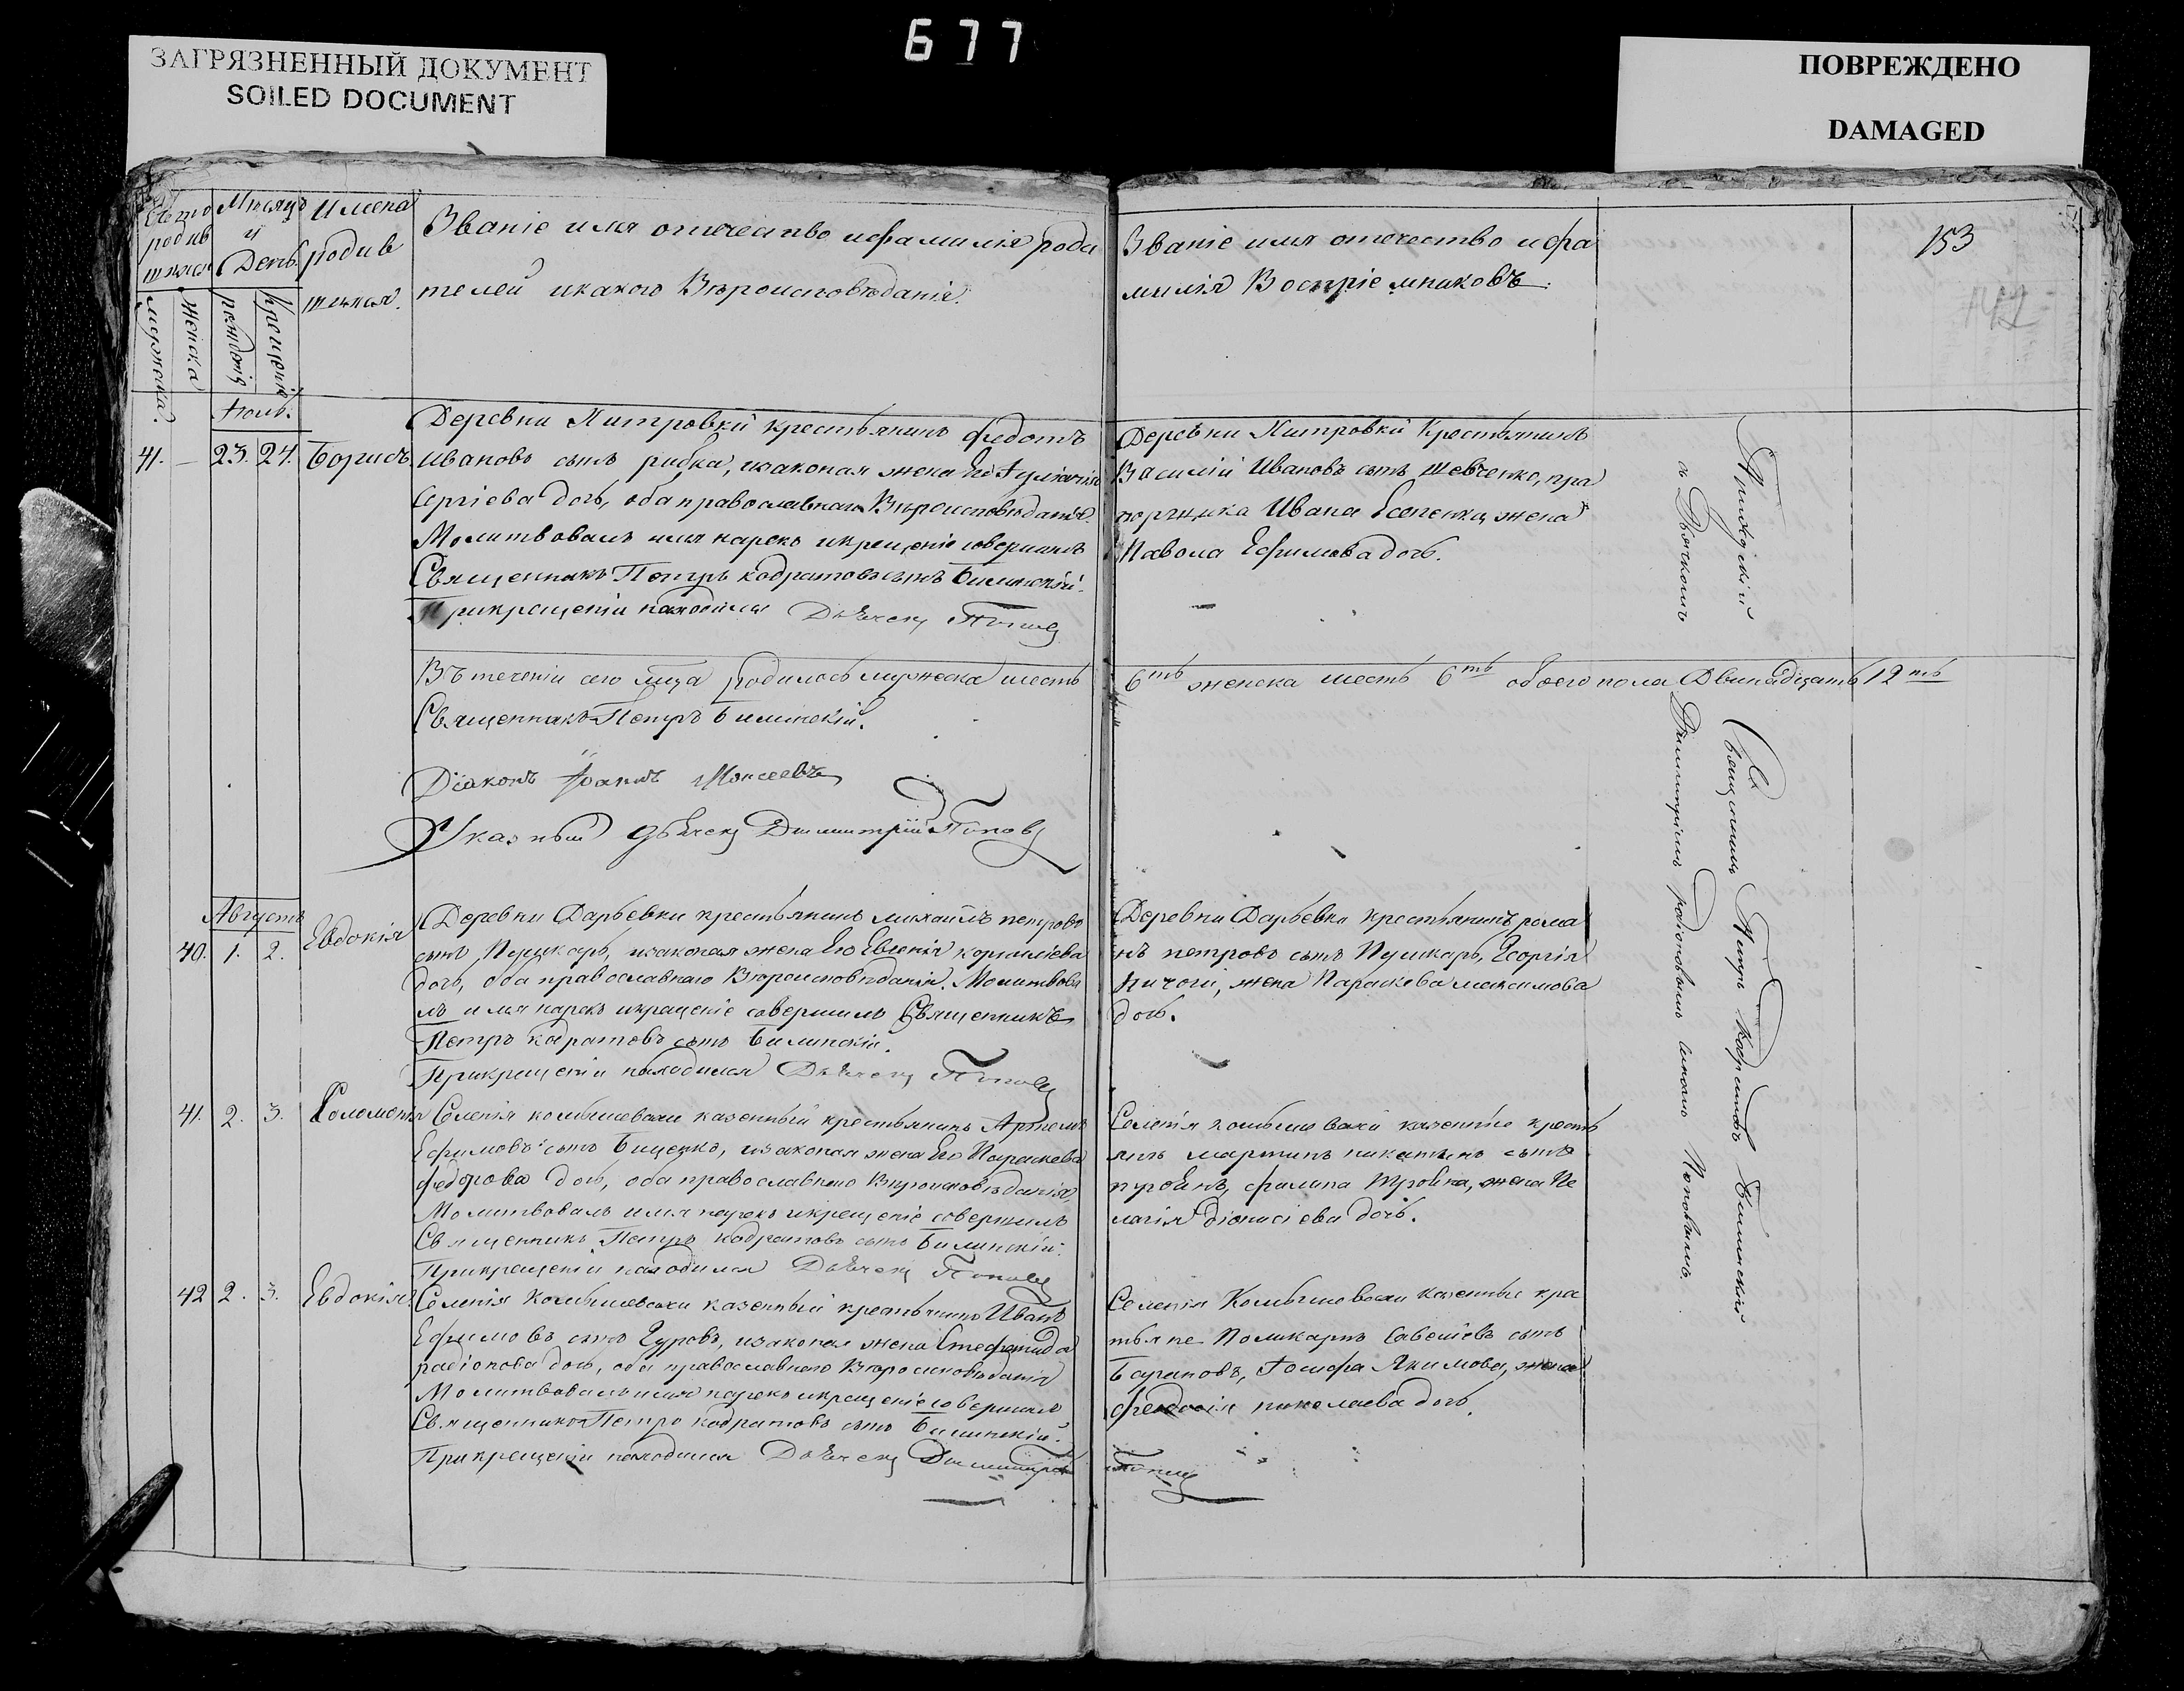 677
ЗАГРЯЗНЕННЫЙ ДОКУМЕНТ
SOILED DOCUMENT
ПОВРЕЖДЕНО
DAMAGED
Мѣсяцъ
и
День.
Имена
родив
шихся.
мужеска.
женска
рожденія
крещенія
Званіе имя отечество ифамилія роди
телей икакого Вѣроисповѣданія.
Званіе имя отечество ифа
милія Воспріемниковъ.
153
Іюль.
41. — 23. 24. Борисъ
Деревни Митровки крестьянинъ Федотъ
Ивановъ сынъ рибка, изаконая жена Его
Сергіева дочь, оба православнаго Вѣроисповѣданія.
Молитвовалъ имя нарекъ икрещеніе совершилъ
Священникъ Петръ кодратовъ сынъ Билинскій.
Прикрещеніи находился Дьячекъ Поповъ
Деревни Митровки Крестьянинъ
Василій Ивановъ сынъ Шевченко, пра
порщика Ивана Есепенка жена
Павола Ефимова дочь.
Въ теченіи сего мца родилось мужеска шесть
6ть женска шесть 6ть обоего пола Двинадцать 12ть
Священникъ Петръ Билинскій.
Діаконъ Іоаннъ Моисеевъ
Указный дьячекъ Димитрій Поповъ
Приходскій
Священникъ Петръ Кодратовъ Билинскій
съ Дьячкомъ
Димитріемъ Радіоновымъ сыномъ Поповымъ.
Августъ
40. 1. 2. Евдокія
Деревни Дарьевки крестьянинъ михаилъ петровъ
сынъ Пушкарь, изаконая жена Его Евгенія корниліева
дочь, оба православнаго Вѣроисповѣданія. Молитвова
лъ имя нарекъ икрещеніе совершилъ Священникъ
Петръ кодратовъ сынъ Билинскій.
Прикрещеніи находился Дьячекъ Поповъ
Деревни Дарьевки крестьянинъ рома
нъ петровъ сынъ Пушкарь, Георгія
жена Параскева максимова
дочь.
41. 2. 3. Соломонія
Селенія комышевахи казенный крестьянинъ Артемъ
Ефимовъ сынъ Бищенко, изаконая жена Его Параскева
Федорова дочь, оба православнаго Вѣроисповѣданія,
Молитвовалъ имя нарекъ икрещеніе совершилъ
Священникъ Петръ кодратовъ сынъ Билинскій.
Прикрещеніи находился Дьячекъ Поповъ
Селенія комышевахи казенніе кресть
яне мартинъ никитинъ сынъ
филипа жена Пе
лагія діонисіева дочь.
42 2. 3. Евдокія
Селенія Комышевахи казенный крестьянинъ Иванъ
Ефимовъ сынъ Гуровъ, изаконая жена Стефанида
радіонова дочь, оба православнаго Вѣроисповѣданія
Молитвовалъ имя нарекъ икрещеніе совершилъ
Священникъ Петръ кодратовъ сынъ Билинскій.
Прикрещеніи находился Дьячекъ Димитрій
Поповъ
Селенія Комышевахи казенные кре
стьяне Поликарпъ Савеліевъ сынъ
Барановъ, Іосифа Якимова, жена
феодосія николаева дочь.